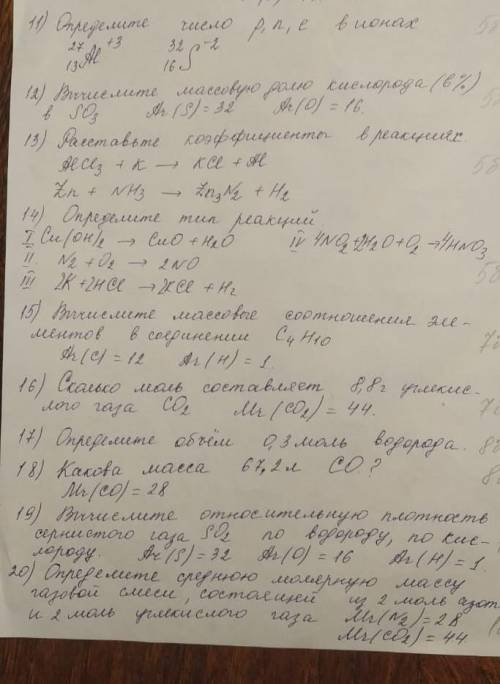 11) Определите число p, n, e в ионах
27 13 Al +3   32 16 S -2
12) Вычислите массовую долю кислорода (б%)
в SO3   Ar(S)=32   Ar(O)=16
13) Расставьте коэффициенты в реакциях
AlCl3 + K → KCl + Al
Zn + NH3 → Zn3N2 + H2
14) Определите тип реакций
I Cu(OH)2 → CuO + H2O   IV 4NO2+2H2O+O2→4HNO3
II N2 + O2 → 2NO
III 2K+2HCl→2KCl+H2
15) Вычислите массовые соотношения эле-
ментов в соединении C4H10
Ar(C)=12   Ar(H)=1
16) Сколько моль составляет 8,8г углекис-
лого газа CO2   Mr(CO2)=44.
17) Определите объём 0,3 моль водорода.
18) Какова масса 67,2л CO?
Mr(CO)=28
19) Вычислите относительную плотность
сернистого газа SO2 по водороду, по кис-
лороду.   Ar(S)=32   Ar(O)=16   Ar(H)=1.
20) Определите среднюю молярную массу
газовой смеси, состоящей из 2 моль азот
и 2 моль углекислого газа   Mr(N2)=28
Mr(CO2)=44